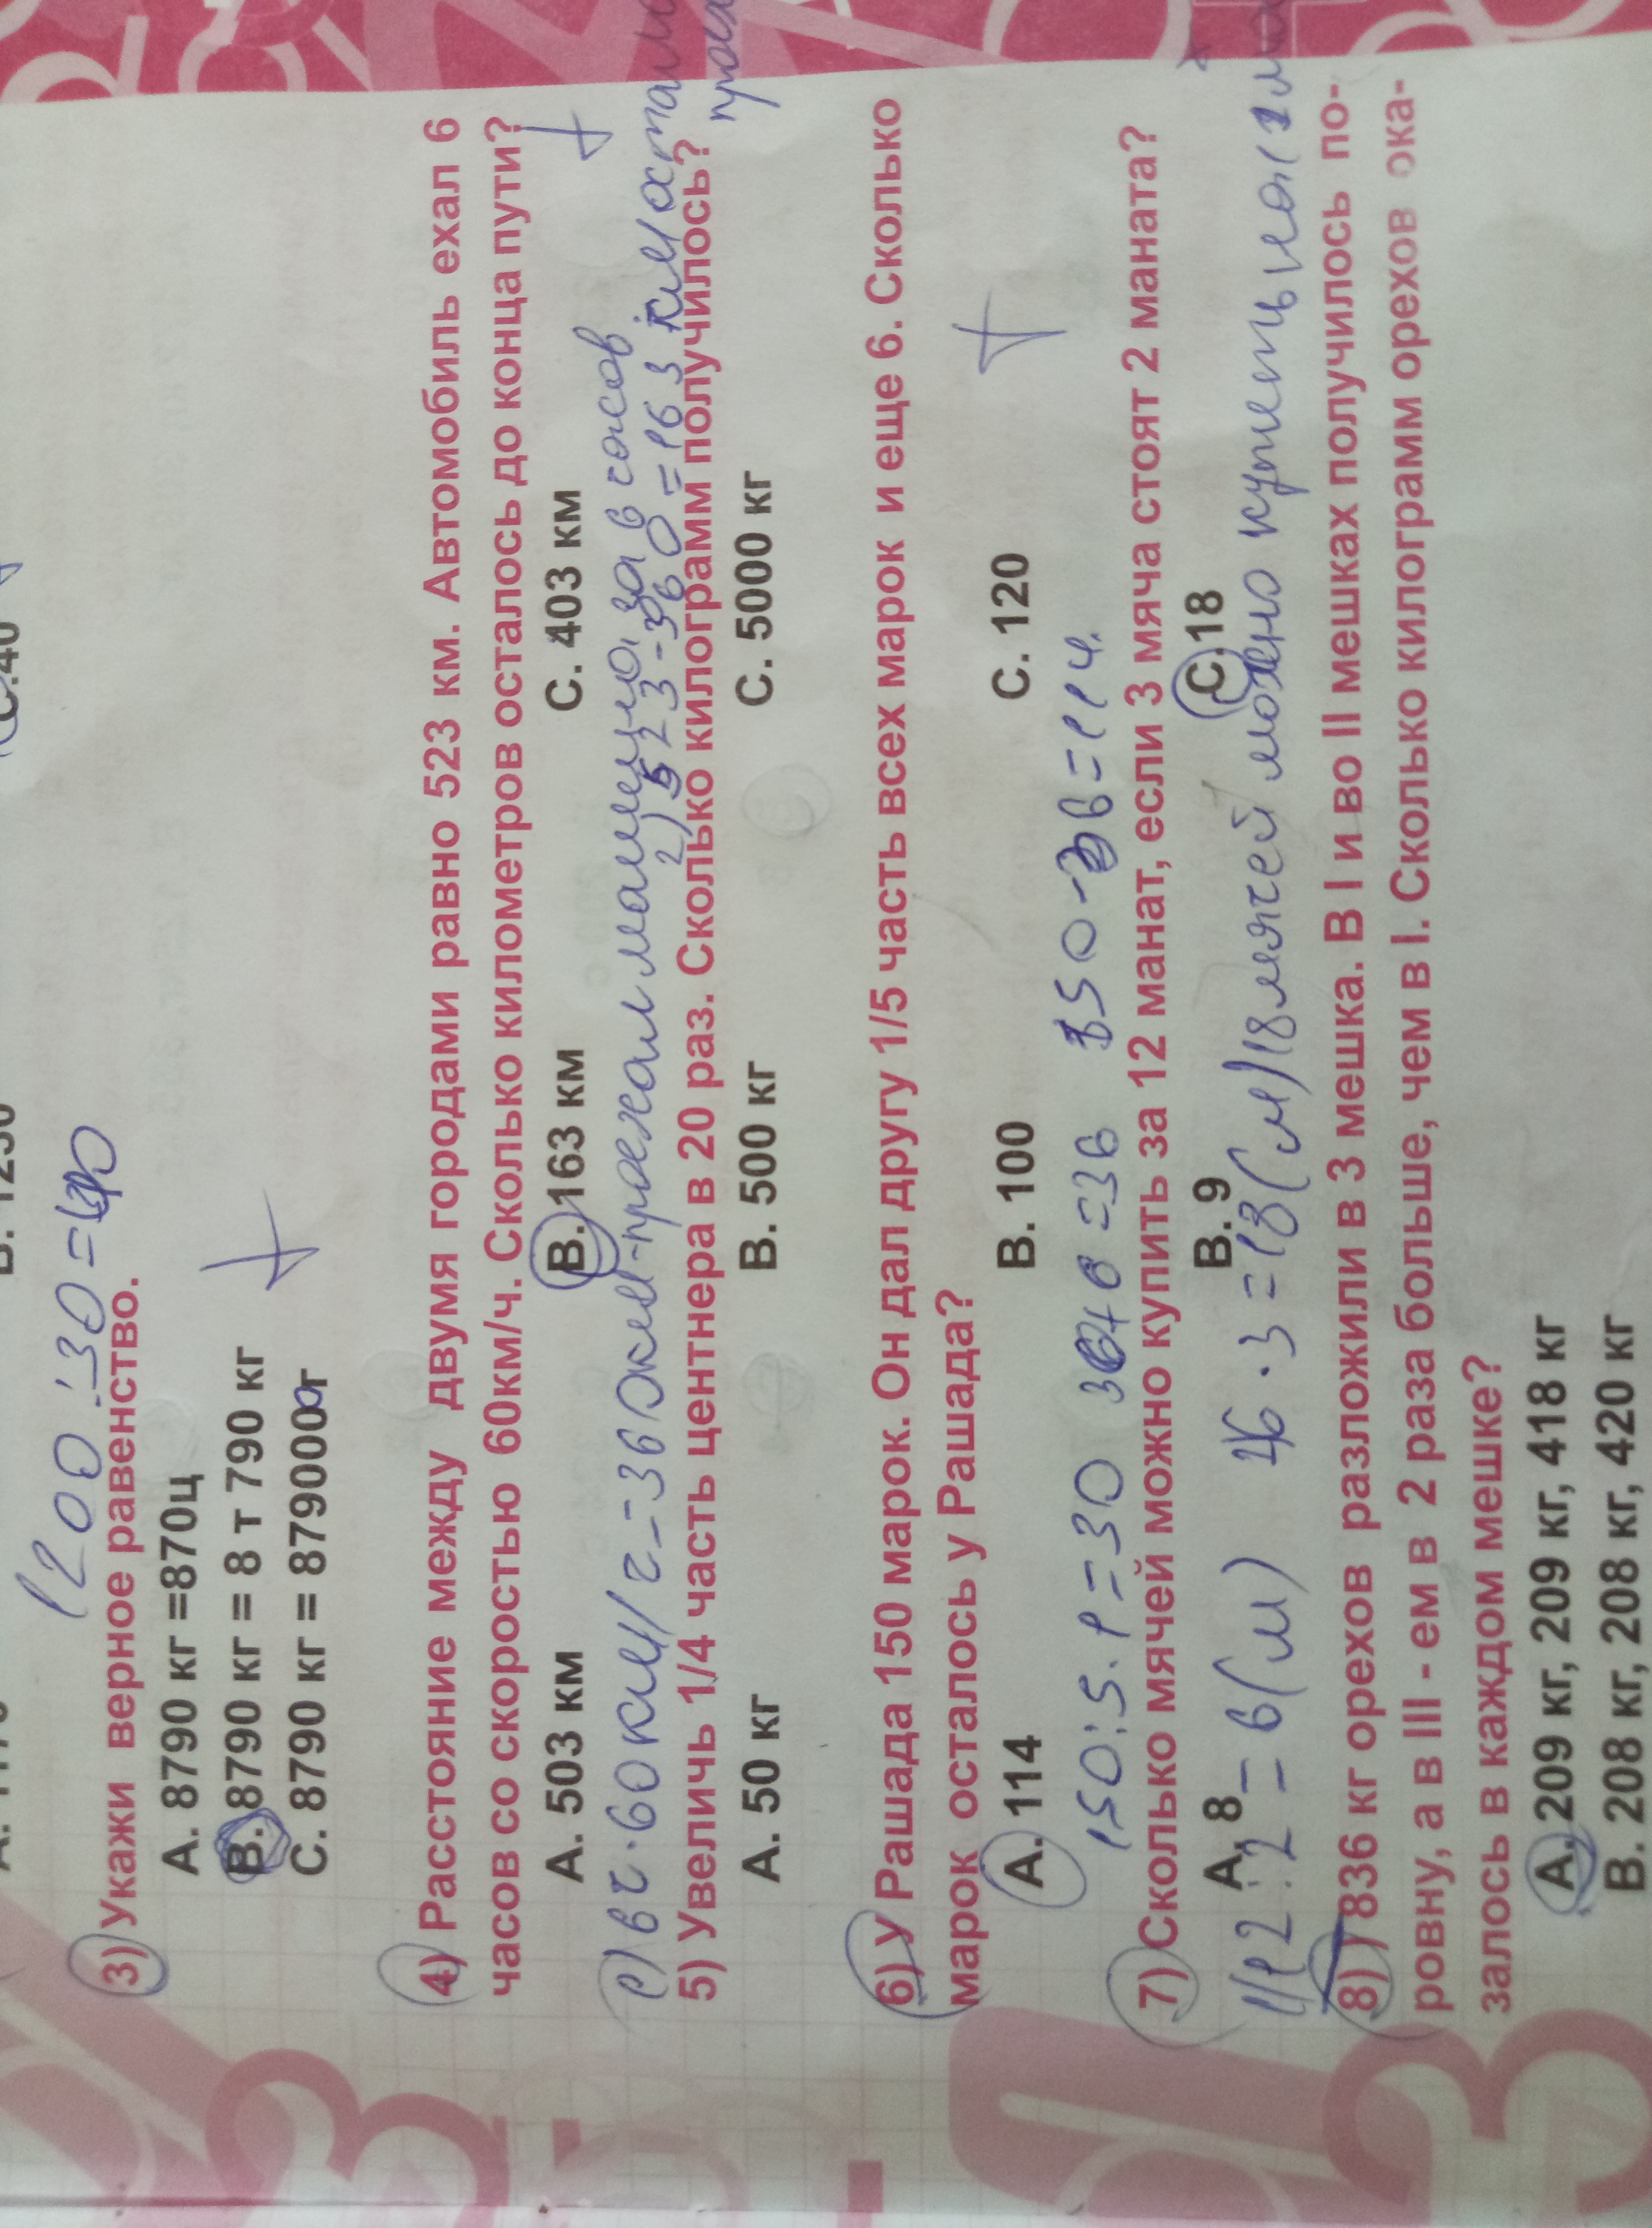 1200:30=40
3) Укажи верное равенство.
А. 8790 кг =870ц
В. 8790 кг = 8 т 790 кг
С. 8790 кг = 879000г
4) Расстояние между двумя городами равно 523 км. Автомобиль ехал 6
часов со скоростью 60км/ч. Сколько километров осталось до конца пути?
А. 503 км В. 163 км С. 403 км
1) 6ч·60км/ч=360км-проехал машина за 6 часов
2) 523-360=163 км
5) Увеличь 1/4 часть центнера в 20 раз. Сколько килограмм получилось?
А. 50 кг В. 500 кг С. 5000 кг
6) У Рашада 150 марок. Он дал другу 1/5 часть всех марок и еще 6. Сколько
марок осталось у Рашада?
А. 114 В. 100 С. 120
150:5·1=30 30+6=36 150-36=114.
7) Сколько мячей можно купить за 12 манат, если 3 мяча стоят 2 маната?
А. 8 В. 9 С. 18
12:2=6(м) 6·3=18(м) 18 мячей можно купить
8) 836 кг орехов разложили в 3 мешка. В I и во II мешках получилось по-
ровну, а в III - ем в 2 раза больше, чем в I. Сколько килограмм орехов ока-
залось в каждом мешке?
А. 209 кг, 209 кг, 418 кг
В. 208 кг, 208 кг, 420 кг